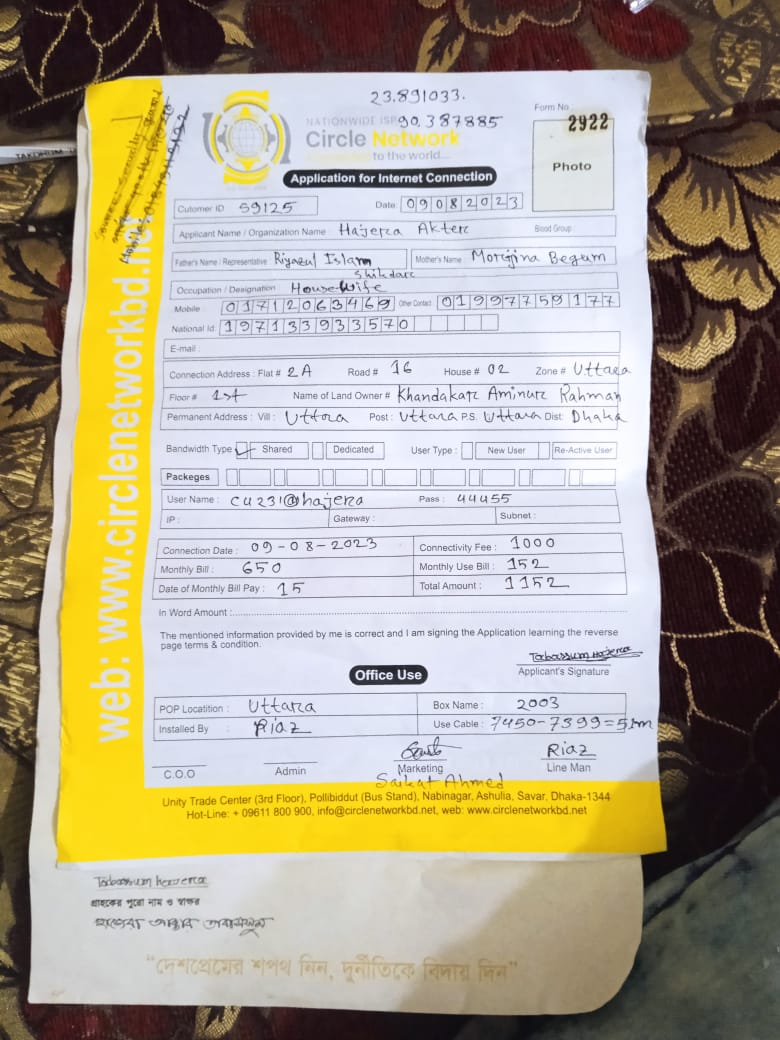 23.891033.
90.387885
NATIONWIDE ISP
Circle Network
Connected to the world...
Form No
2922
Photo
Application for Internet Connection
Cutomer ID 59125 Date: 09082023
Applicant Name / Organization Name : Hajera Akter Blood Group :
Father's Name / Representative Riyazul Islam Shikdar Mother's Name Morgina Begum
Occupation / Designation House wife
Mobile : 01712063469 Other Contact : 01997759177
National Id : 197133933570
E-mail :
Connection Address : Flat # 2A Road # 16 House # 02 Zone # Uttara
Floor # 1st Name of Land Owner # Khandakar Aminur Rahman
Permanent Address : Vill : Uttora Post : Uttara P.S. Uttara Dist: Dhaka
Bandwidth Type Shared Dedicated User Type : New User Re-Active User
Packeges
User Name : C4231@hajera Pass : 44455
IP : Gateway : Subnet :
Connection Date : 09-08-2023 Connectivity Fee : 1000
Monthly Bill : 650 Monthly Use Bill : 152
Date of Monthly Bill Pay : 15 Total Amount : 1152
In Word Amount :
The mentioned information provided by me is correct and I am signing the Application learning the reverse
page terms & condition.
Tabassum Hajera
Applicant's Signature
Office Use
POP Locatition : Uttara Box Name : 2003
Installed By : Riaz Use Cable : 7450-7399=51m
Riaz
C.O.O Admin Marketing Line Man
Saikat Ahmed
Unity Trade Center (3rd Floor), Pollibiddut (Bus Stand), Nabinagar, Ashulia, Savar, Dhaka-1344
Hot-Line: + 09611 800 900, info@circlenetworkbd.net, web: www.circlenetworkbd.net
web: www.circlenetworkbd.net
Tabassum hajera
গ্রাহকের পুরো নাম ও স্বাক্ষর
হাজেরা আক্তার তাবাসসুম
"দেশপ্রেমের শপথ নিন, দুর্নীতিকে বিদায় দিন"